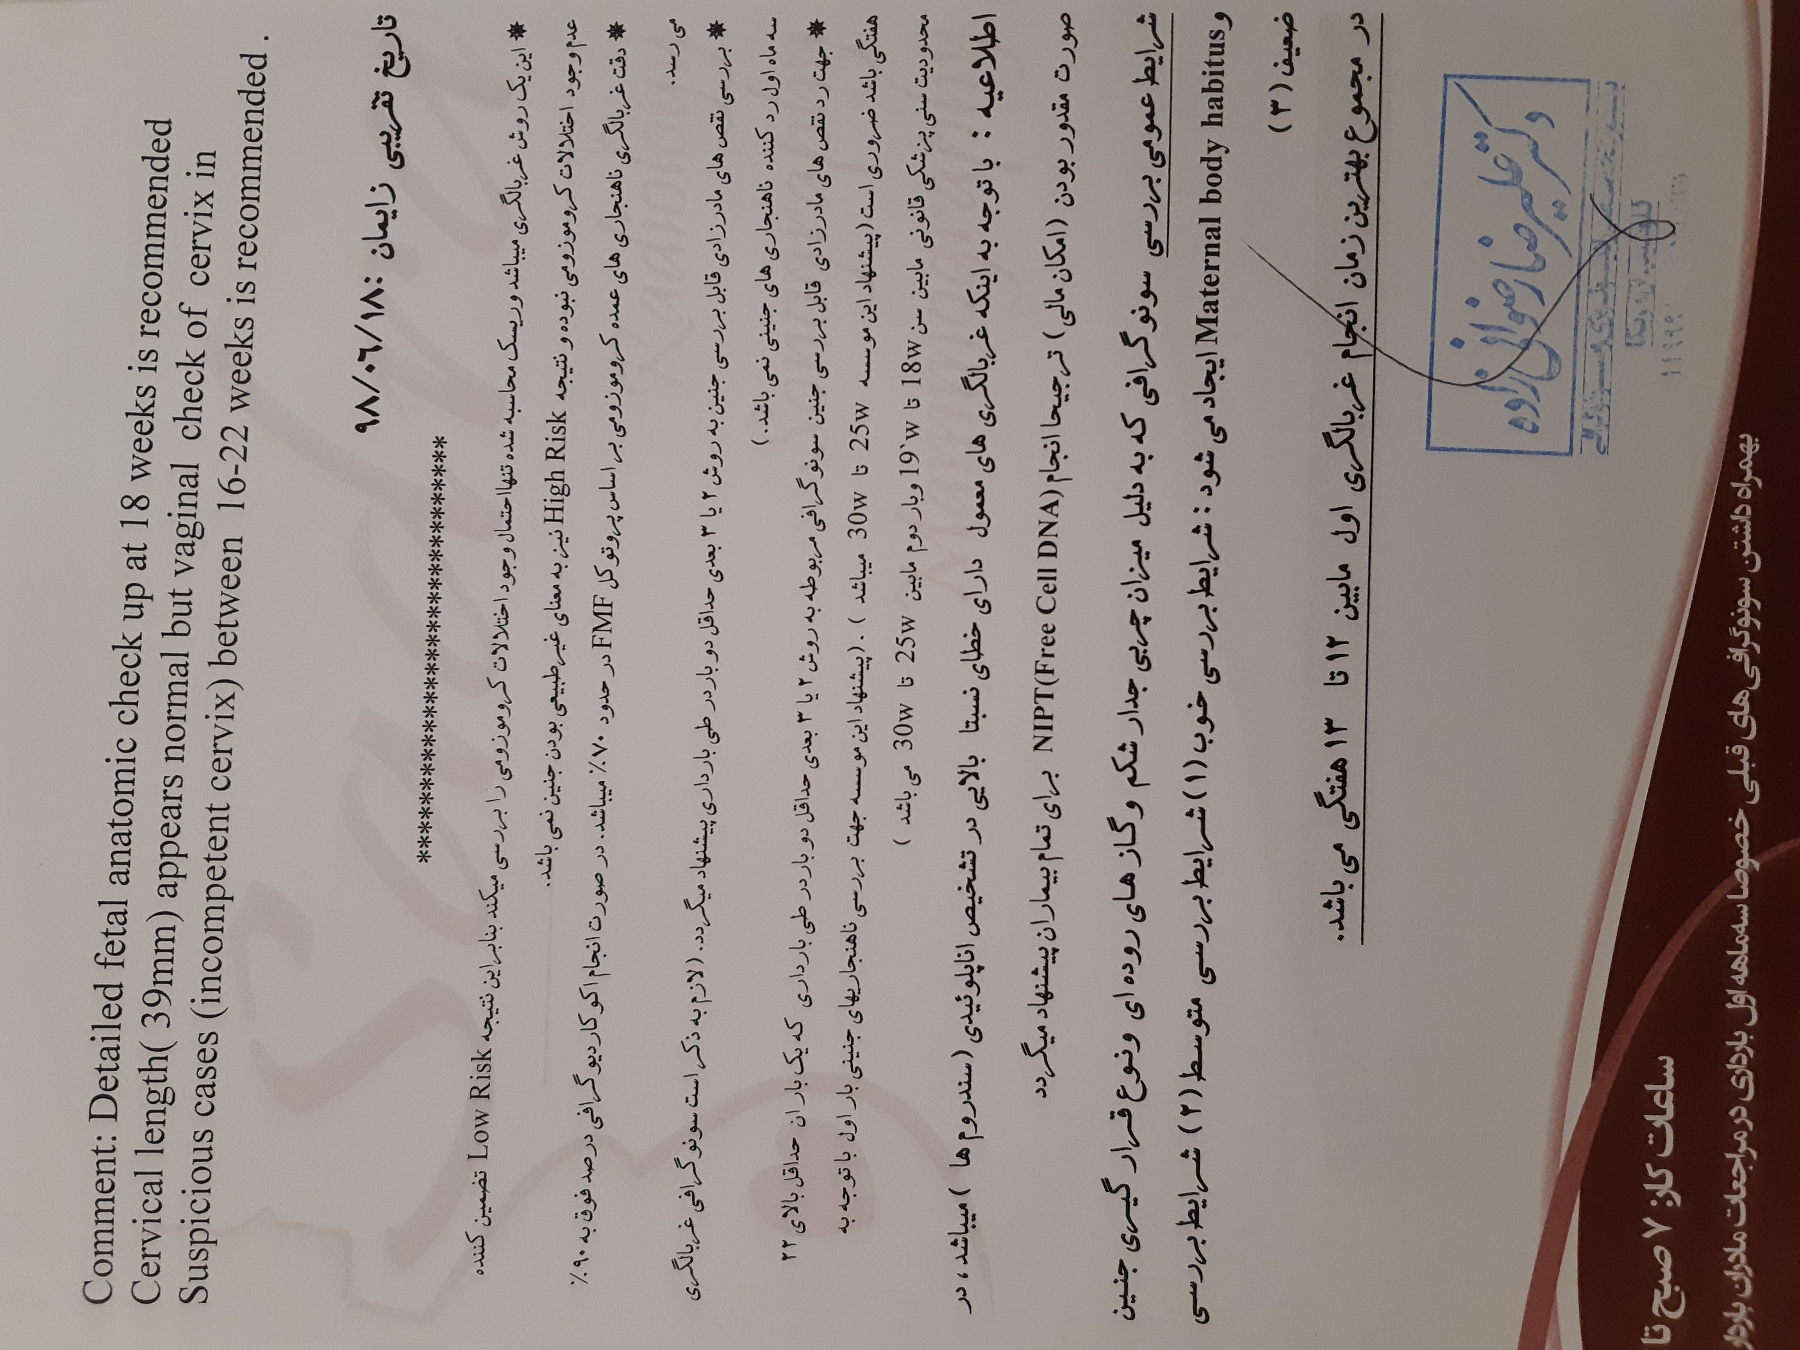 Comment: Detailed fetal anatomic check up at 18 weeks is recommended
Cervical length( 39mm) appears normal but vaginal check of cervix in
Suspicious cases (incompetent cervix) between 16-22 weeks is recommended .
تاریخ تقریبی زایمان :۹۸/۰۶/۱۸
******************************
* این یک روش غربالگری میباشد و ریسک محاسبه شده تنها احتمال وجود اختلالات کروموزومی را بررسی میکند بنابراین نتیجه Low Risk تضمین کننده
عدم وجود اختلالات کروموزومی نبوده و نتیجه High Risk نیز به معنای غیر طبیعی بودن جنین نمی باشد.
* دقت غربالگری ناهنجاری های عمده کروموزومی بر اساس پروتوکل FMF در حدود ۷۰٪ میباشد. در صورت انجام اکوکاردیوگرافی درصد فوق به ۹۰٪
می رسد.
* بررسی نقص های مادرزادی قابل بررسی جنین به روش ۲ یا ۳ بعدی حداقل دو بار در طی بارداری پیشنهاد میگردد. (لازم به ذکر است سونوگرافی غربالگری
سه ماه اول رد کننده ناهنجاری های جنینی نمی باشد.)
* جهت رد نقص های مادرزادی قابل بررسی جنین سونوگرافی مربوطه به روش ۲ یا ۳ بعدی حداقل دو بار در طی بارداری که یک بار ان حداقل بالای ۲۲
هفتگی باشد ضروری است (پیشنهاد این موسسه 25w تا 30w میباشد ) . (پیشنهاد این موسسه جهت بررسی ناهنجاریهای جنینی بار اول با توجه به
محدودیت سنی پزشکی قانونی مابین سن 18w تا 19w وبار دوم مابین 25w تا 30w می باشد )
اطلاعیه : با توجه به اینکه غربالگری های معمول دارای خطای نسبتا بالایی در تشخیص اناپلوئیدی (سندروم ها ) میباشد، در
صورت مقدور بودن (امکان مالی) ترجیحا انجام NIPT(Free Cell DNA) برای تمام بیماران پیشنهاد میگردد
شرایط عمومی بررسی سونوگرافی که به دلیل میزان چربی جدار شکم و گاز های روده ای ونوع قرار گیری جنین
و Maternal body habitus ایجاد می شود : شرایط بررسی خوب (۱) شرایط بررسی متوسط (۲) شرایط بررسی
ضعیف (۳)
در مجموع بهترین زمان انجام غربالگری اول مابین ۱۲ تا ۱۳ هفتگی می باشد.
دکتر علیرضا رضوانی زاوه
ساعات کار: ۷ صبح تا
بهمراه داشتن سونوگرافی های قبلی خصوصا سه ماهه اول بارداری در مراجعات مادران باردار